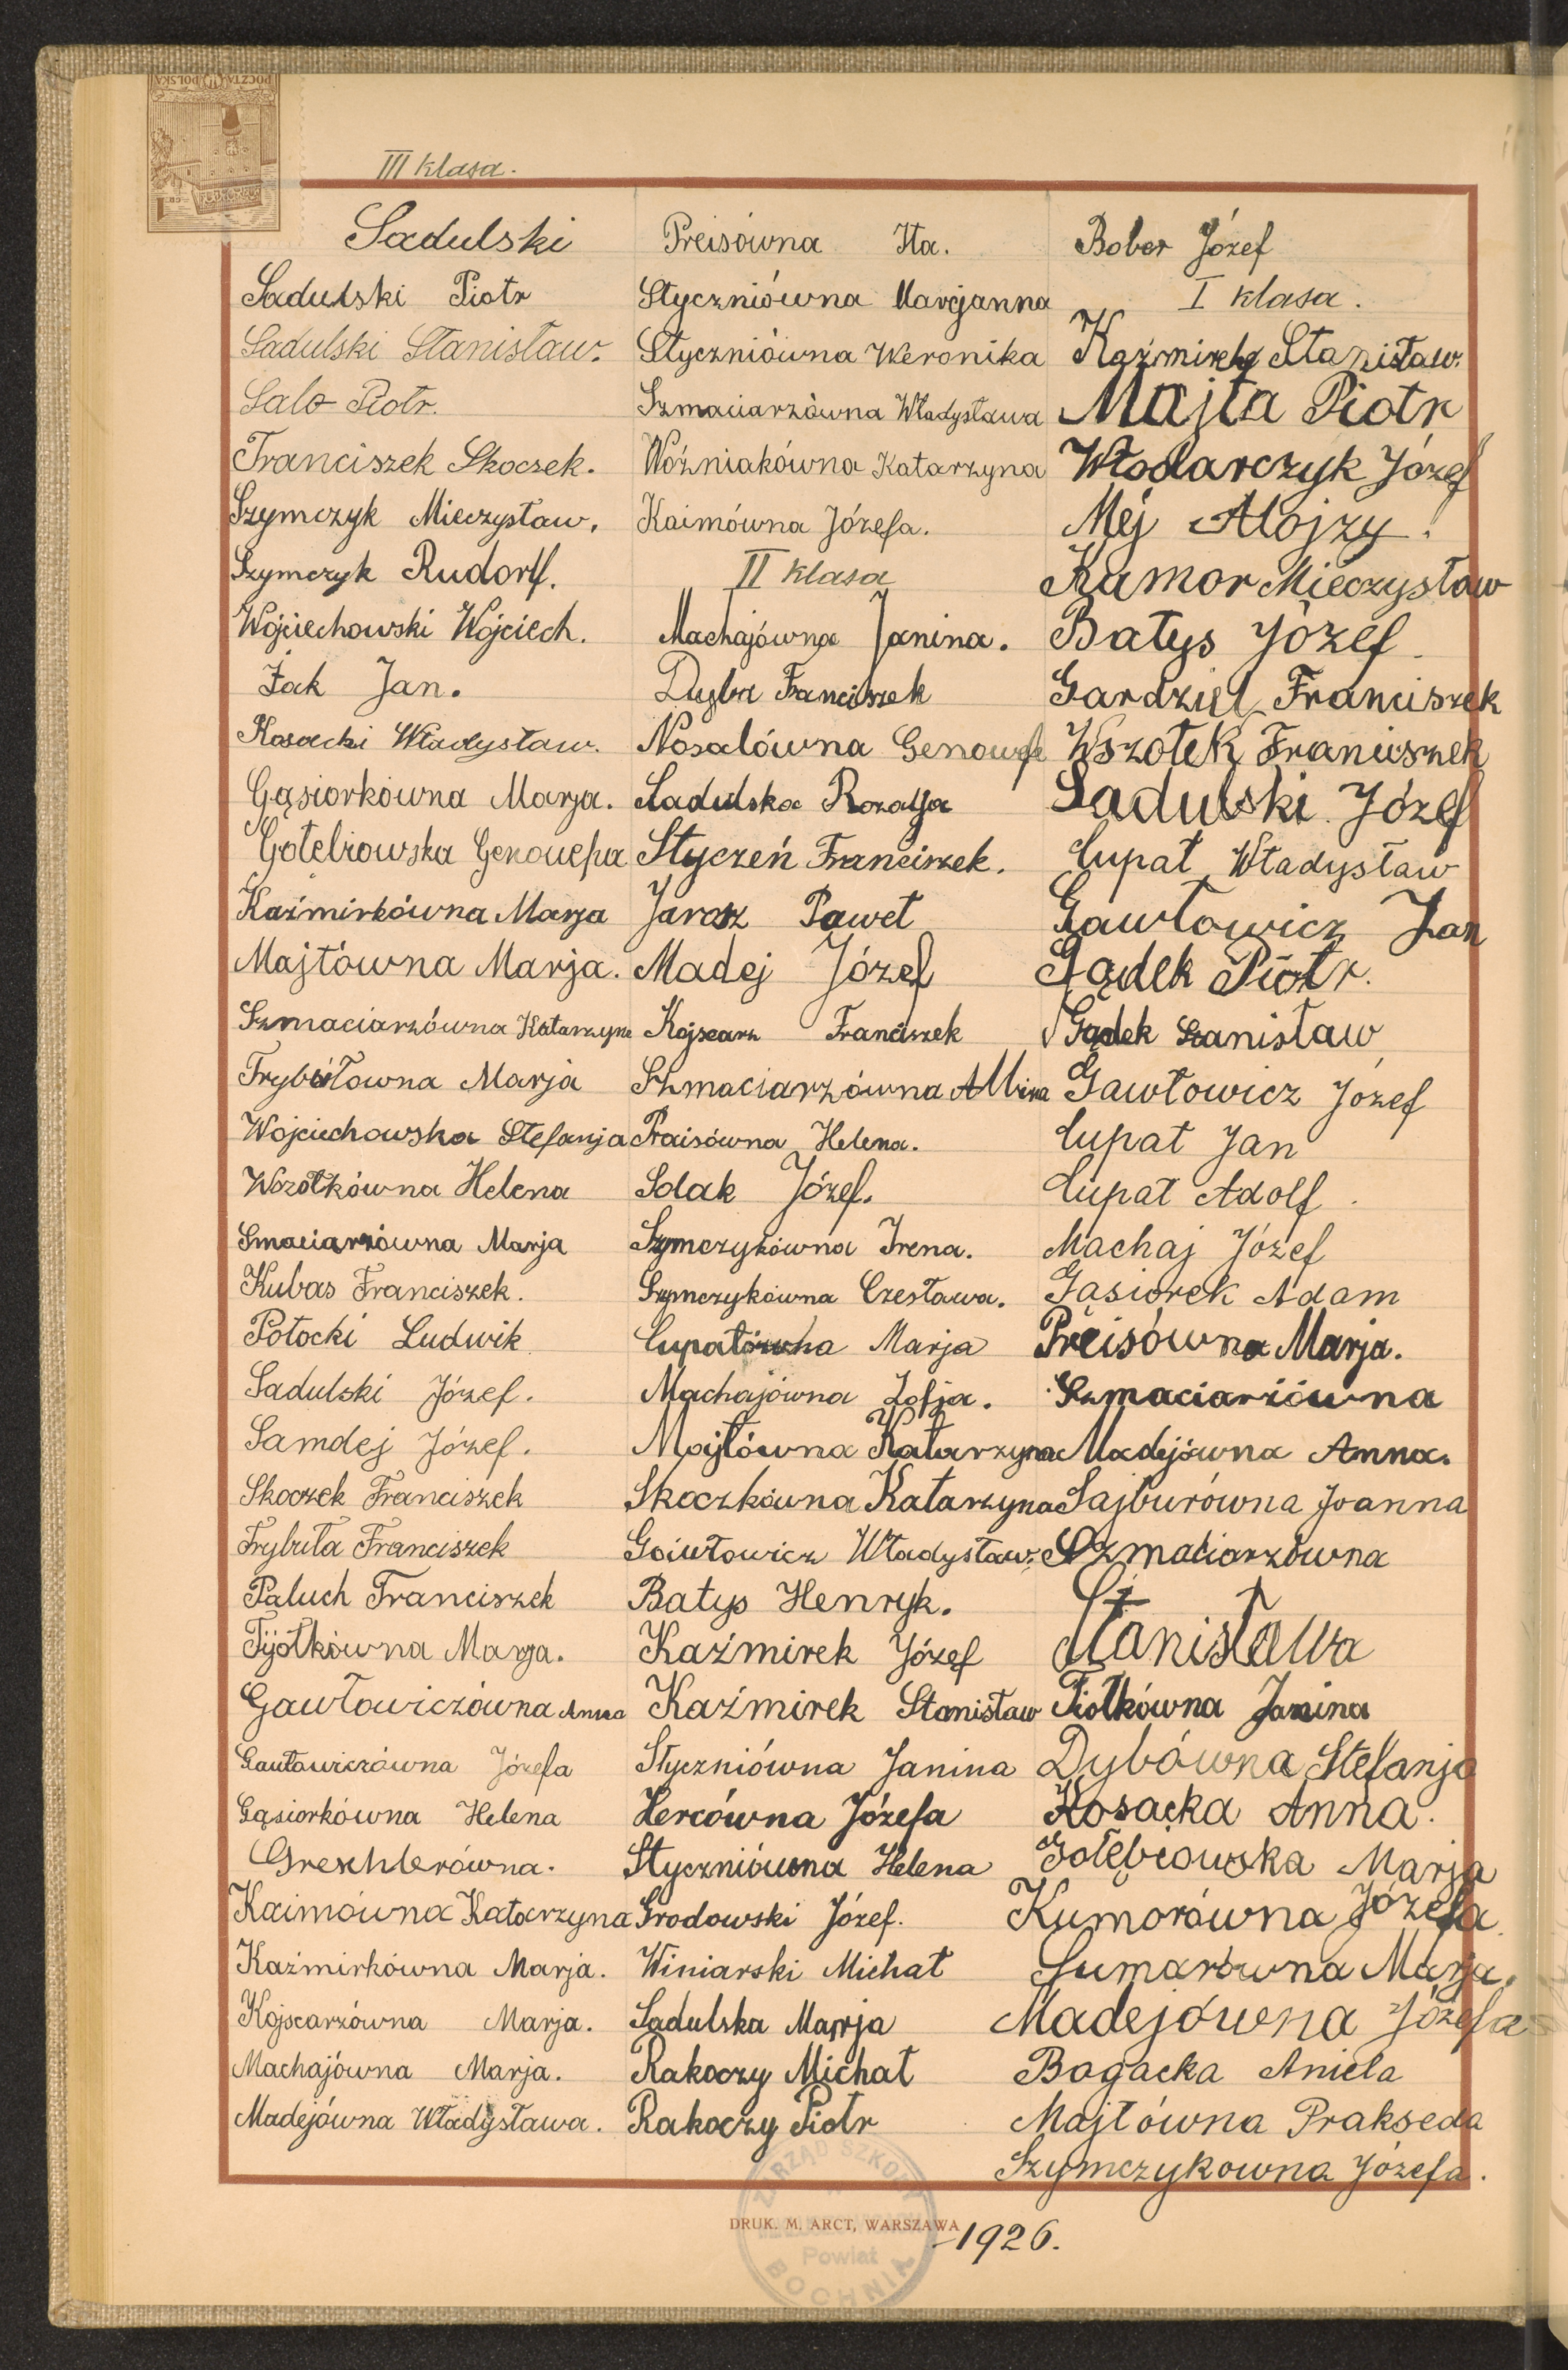 POCZTA POLSKA
III klasa.
Sadulski
Sadulski Piotr
Sadulski Stanisław.
Salo Piotr.
Franciszek Skoczek.
Szymczyk Mieczysław.
Szymczyk Rudorlf.
Wojciechowski Wojciech.
Żak Jan.
Kosacki Władysław.
Gąsiorkówna Marja.
Gołebiowska Genowefa
Kaźmirkówna Marja
Majtówna Marja.
Szmaciarzówna Katarzyna
Trybułowna Marja
Wojciechowska Stefanja
Wszołkówna Helena
Smaciarzówna Marja
Kubas Franciszek.
Potocki Ludwik
Sadulski Józef.
Samdej Józef.
Skoczek Franciszek
Trybuła Franciszek
Paluch Franciszek
Fijołkówna Marja.
Gawłowiczówna Anna
Gawłowiczówna Józefa
Gąsiorkówna Helena
Greschlerówna.
Kaimówna Katarzyna
Kaźmirkówna Marja.
Kojscarzówna Marja.
Machajówna Marja.
Madejówna Władysława.
Preisówna Ita.
Styczniówna Marcjanna
Styczniówna Weronika
Szmaciarzówna Władysława
Woźniakówna Katarzyna
Kaimówna Józefa.
II klasa
Machajówna Janina.
Dyba Franciszek
Nosalówna Genowefa
Sadulska Rozalja
Styczeń Franciszek.
Jarosz Paweł
Madej Józef
Kojscarz Franciszek
Szmaciarzówna Albina
Praisówna Helena.
Solak Józef.
Szymczykówna Irena.
Szymczykówna Czesława.
Cupatówna Marja
Machajówna Zofja.
Majtówna Katarzyna
Skoczkówna Katarzyna
Gawłowicz Władysław.
Batys Henryk.
Kaźmirek Józef
Kaźmirek Stanisław
Styczniówna Janina
Hercówna Józefa
Styczniówna Helena
Grodowski Józef.
Winiarski Michał
Sadulska Marja
Rakoczy Michał
Rakoczy Piotr
Bober Józef
I klasa.
Kaźmirek Stanisław.
Majta Piotr
Włodarczyk Józef
Mej Alojzy.
Kumor Mieczysław
Batys Józef
Gardziel Franciszek
Wszołek Franciszek
Sadulski Józef
Cupat Władysław
Gawłowicz Jan
Gądek Piotr.
Gądek Stanisław
Gawłowicz Józef
Cupat Jan
Cupat Adolf
Machaj Józef
Gąsiorek Adam
Preisówna Marja.
Szmaciarzówna
Madejówna Anna.
Sajburówna Joanna
Szmaciarzówna
Stanisława
Fiołkówna Janina
Dybówna Stefanja
Kosacka Anna.
Gołębiowska Marja
Kumorówna Józefa
Marja.
Madejówna Józefa
Bogacka Aniela
Majtówna Prakseda
Szymczykowna Józefa.
DRUK. M. ARCT, WARSZAWA
1926.
ZARZĄD SZKOŁY
Powiat
BOCHNIA